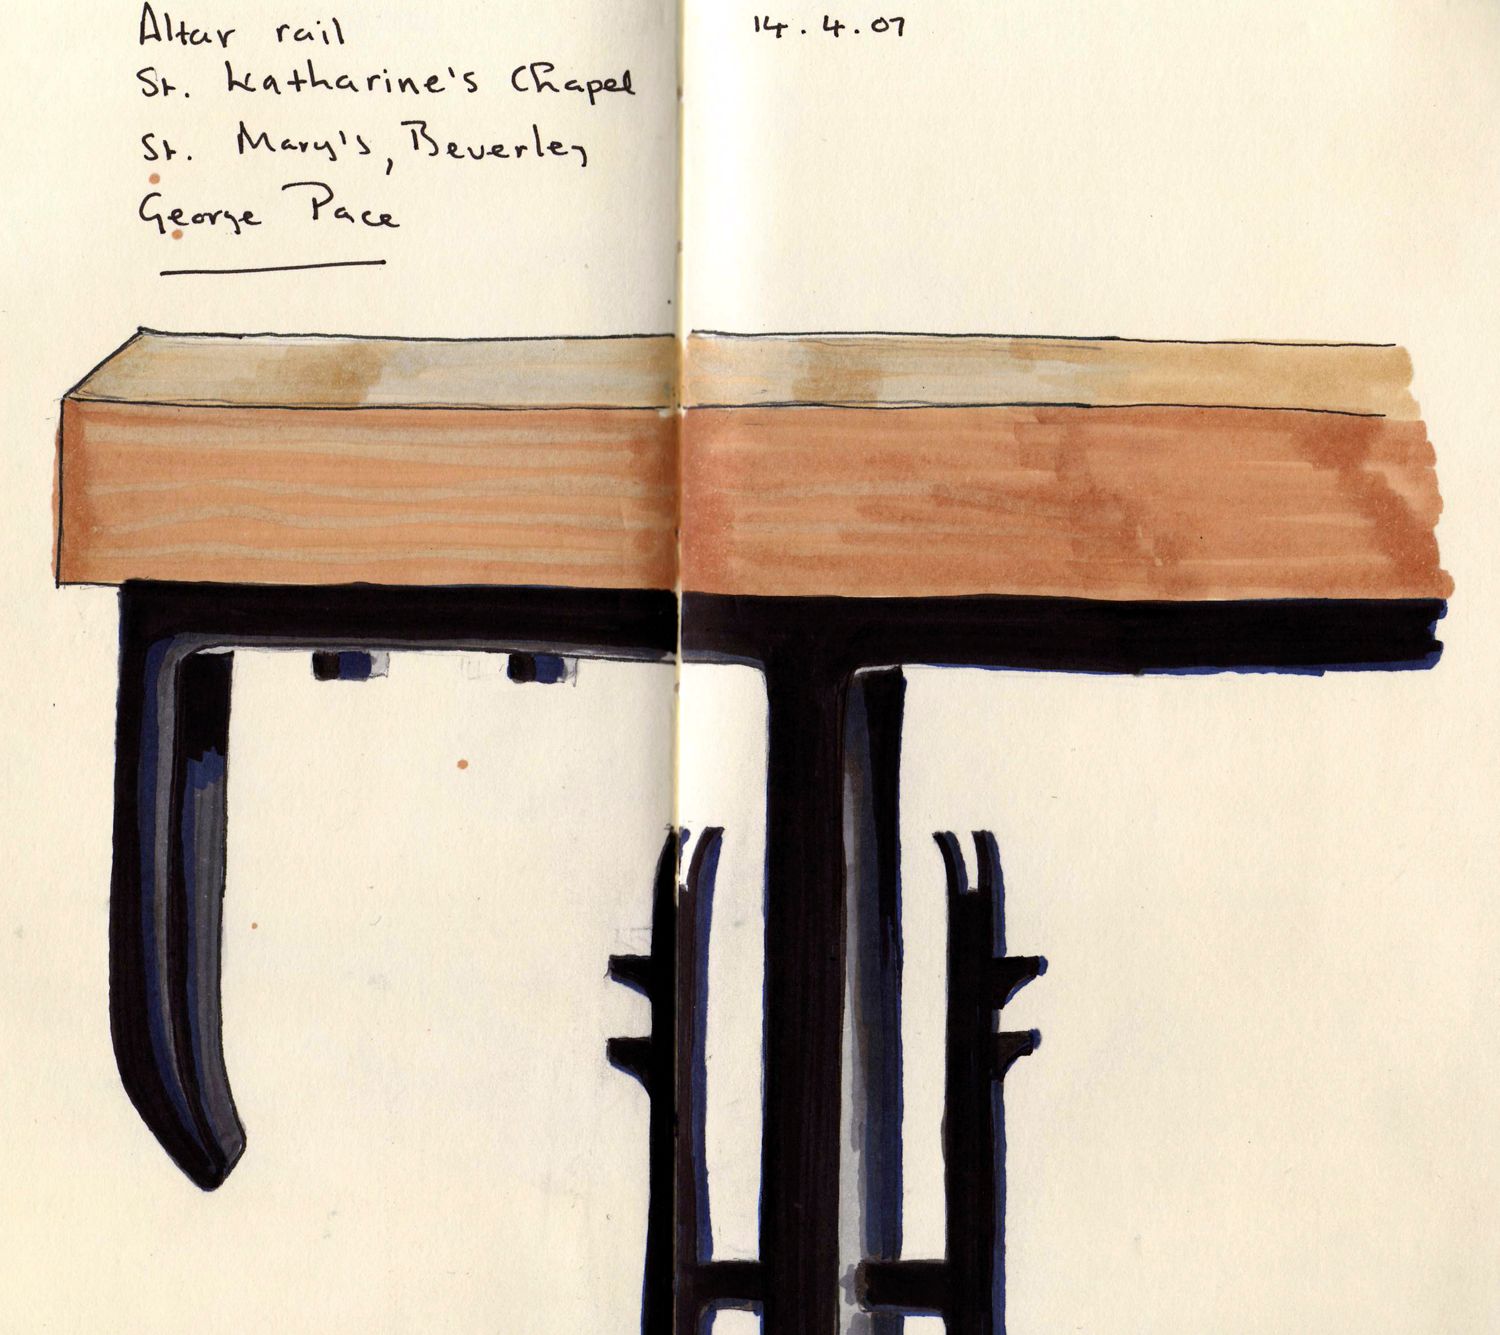 Altar rail
St. Katharine's Chapel
St. Mary's, Beverley
George Pace
14.4.07